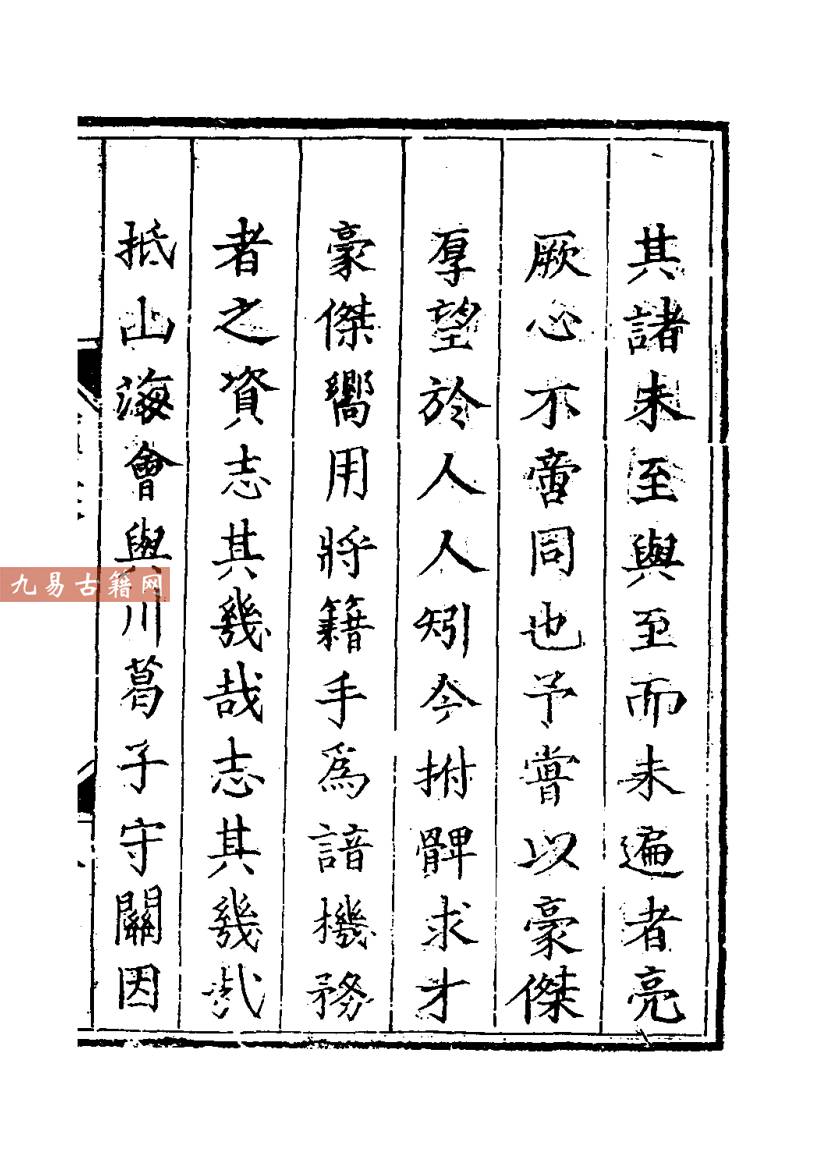 其諸未至與至而未遍者亮
厥心不啻同也予嘗以豪傑
厚望於人人矧今拊髀求才
豪傑嚮用將籍手爲諳機務
者之資志其幾哉志其幾哉
抵山海會與川葛子守關因
九易古籍网